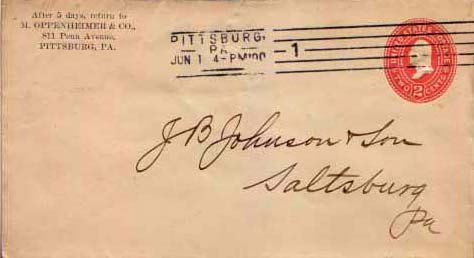 After 5 days, return to
M. OPPENHEIMER & CO.,
811 Penn Avenue,
PITTSBURG, PA.
PITTSBURG,
PA.
JUN 1 4-PM '00
1
TWO 2 CENTS
J B Johnson & Son
Saltsburg
Pa